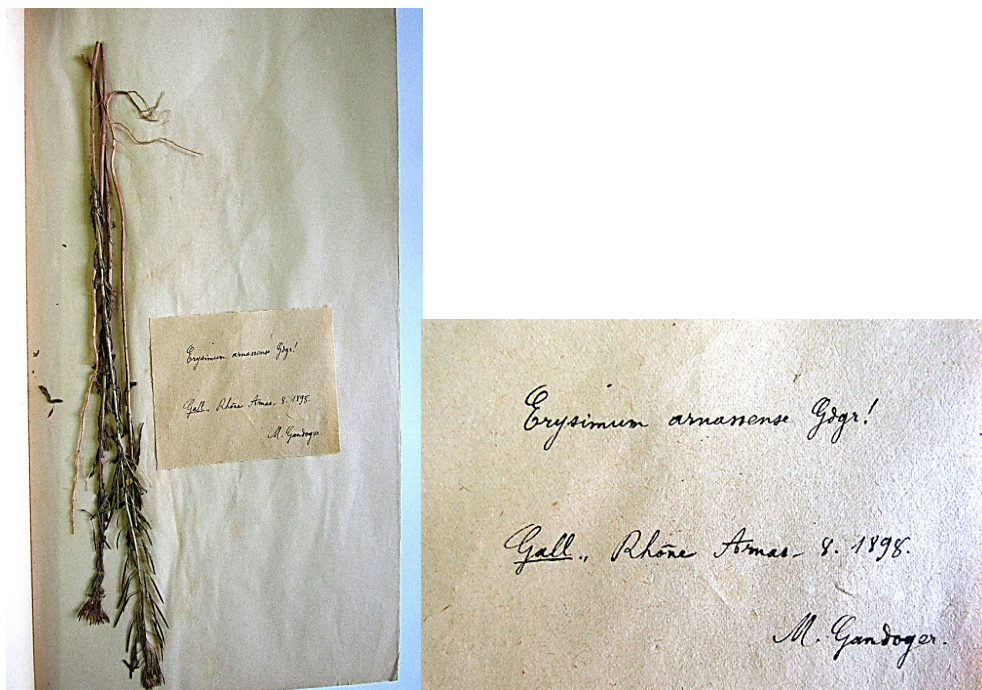 Erysimum arnassense Gdgr!
Gall., Rhône Arnas - 8. 1898.
M. Gandoger.
Erysimum arnassense Gdgr!
Gall., Rhône Arnas - 8. 1898.
M. Gandoger.